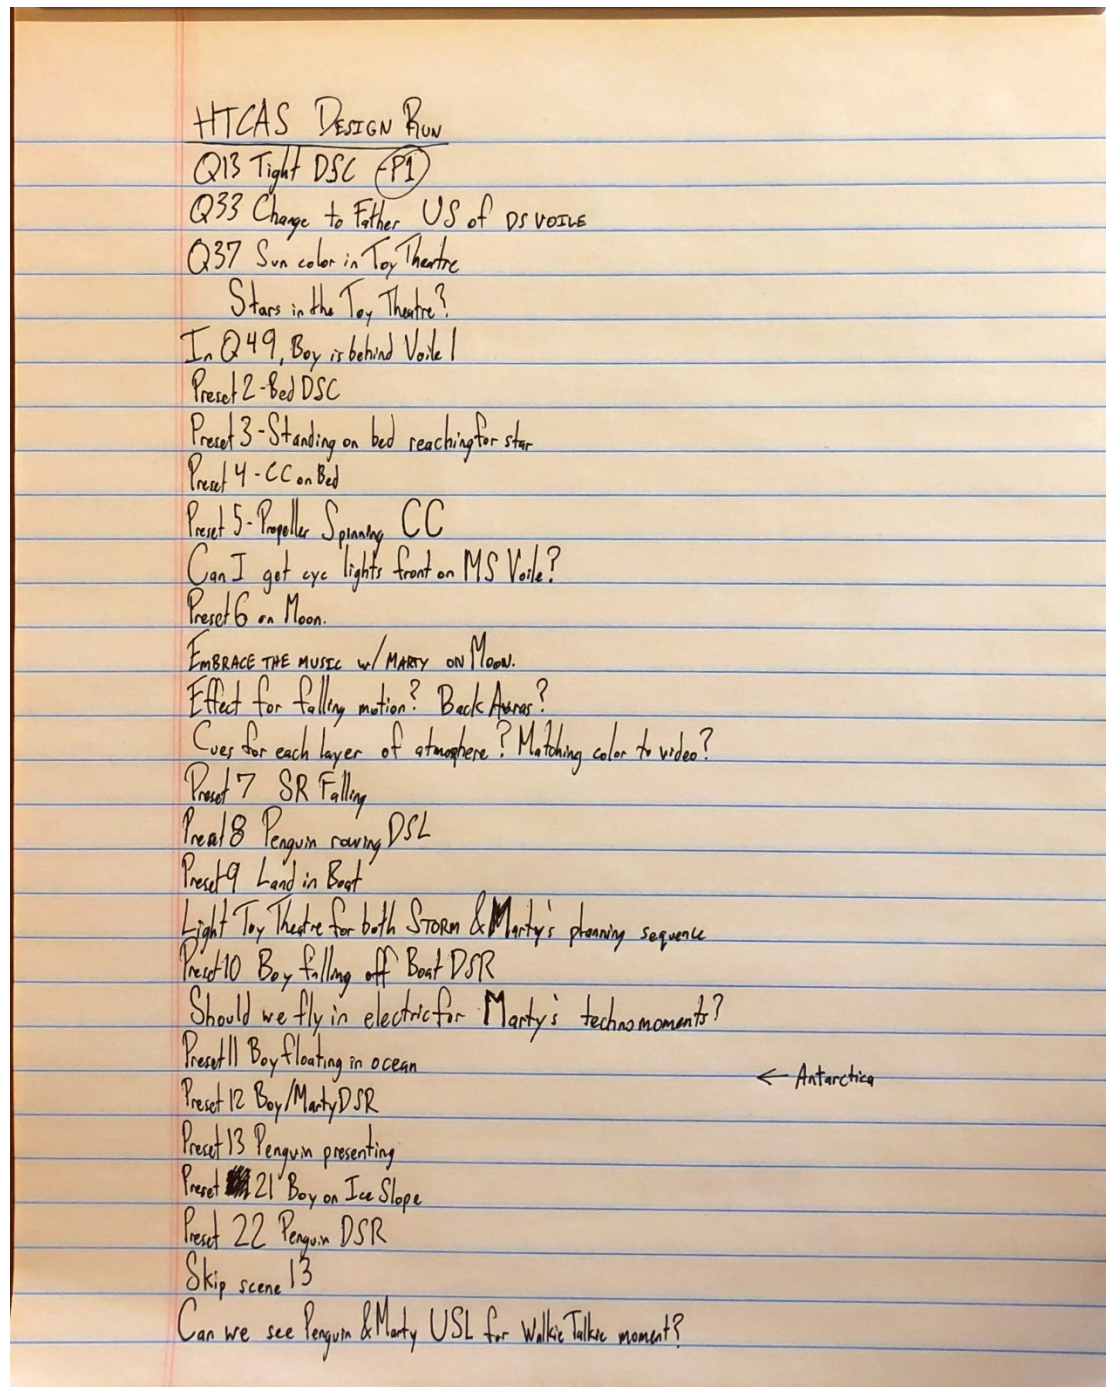 HTCAS DESIGN RUN
Q13 Tight DSC (P1)
Q33 Change to Father US of DS VOILE
Q37 Sun color in Toy Theatre
Stars in the Toy Theatre?
In Q49, Boy is behind Voile 1
Preset 2 - Bed DSC
Preset 3 - Standing on bed reaching for star
Preset 4 - CC on Bed
Preset 5 - Propeller Spinning CC
Can I get cyc lights front on MS Voile?
Preset 6 on Moon.
EMBRACE THE MUSIC w/ MARTY ON MOON.
Effect for falling motion? Back Auras?
Cues for each layer of atmosphere? Matching color to video?
Preset 7 SR Falling
Preset 8 Penguin rowing DSL
Preset 9 Land in Boat
Light Toy Theatre for both STORM & Marty's planning sequence
Preset 10 Boy falling off Boat DSR
Should we fly in electric for Marty's techno moments?
Preset 11 Boy floating in ocean
← Antarctica
Preset 12 Boy/Marty DSR
Preset 13 Penguin presenting
Preset 21 Boy on Ice Slope
Preset 22 Penguin DSR
Skip scene 13
Can we see Penguin & Marty USL for Walkie Talkie moment?